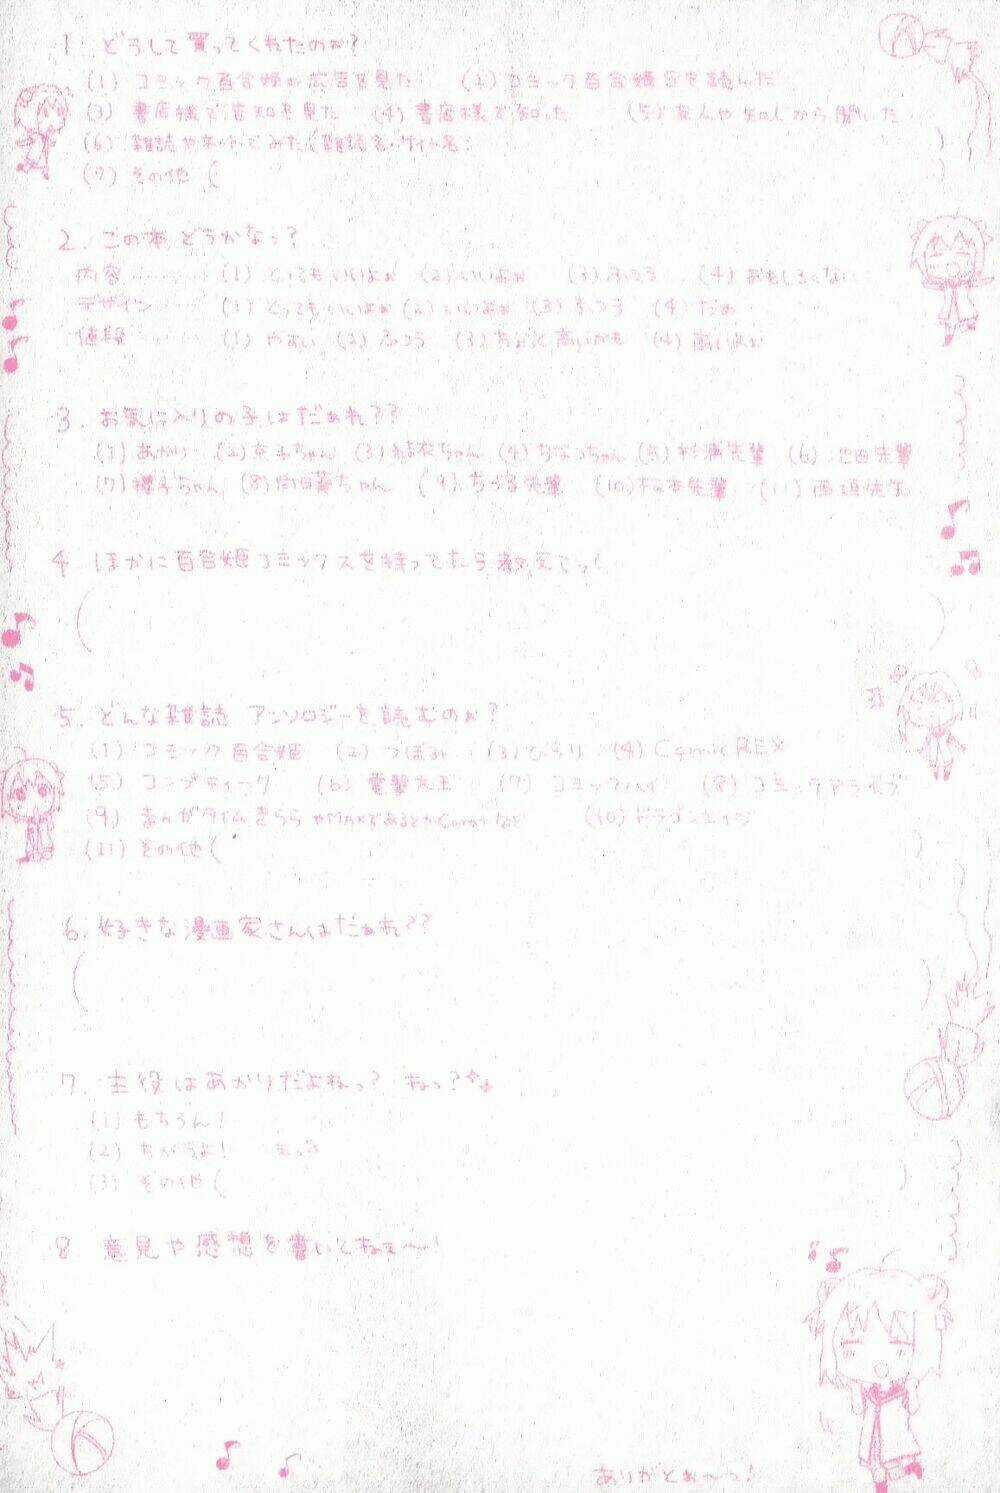 1. どうして買ってくれたのぉ?
(1) コミック百合姫の広告を見た (2) コミック百合姫を読んだ
(3) 書店様で告知を見た (4) 書店様で知った (5) 友人や知人から聞いた
(6) 雑誌やネットでみた(雑誌名・サイト名: )
(7) その他 ( )
2. この本どうかなっ?
内容 (1) とってもいいよぉ (2) いいよぉ (3) ふつう (4) おもしろくない
デザイン (1) とってもいいよぉ (2) いいよぉ (3) ふつう (4) だめ
値段 (1) やすい (2) ふつう (3) ちょっと高いかも (4) 高いよぉ
3. お気に入りの子はだぁれ??
(1) あかり (2) 京子ちゃん (3) 結衣ちゃん (4) ちなつちゃん (5) 杉浦先輩 (6) 池田先輩
(7) 櫻子ちゃん (8) 向日葵ちゃん (9) ちづる先輩 (10) 松本先輩 (11) 西垣先生
4 ほかに百合姫コミックスを持ってたら教えてっ
( )
5. どんな雑誌 アンソロジーを読むのぉ?
(1) コミック百合姫 (2) つぼみ (3) ひらり (4) Comic REX
(5) コンプティーク (6) 電撃大王 (7) コミックハイ (8) コミックアライブ
(9) まんがタイムきらら やMAXであるとか など (10) ドラゴンエイジ
(11) その他 ( )
6. 好きな漫画家さんはだぁれ??
( )
7. 主役はあかりだよねっ? ねっ?
(1) もちろん!
(2) ちがうよ!
(3) その他 ( )
8 意見や感想を書いてねぇ〜!
ありがとぉ〜っ!